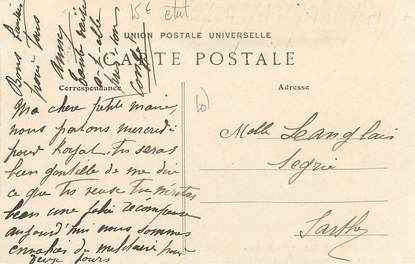 15€ état
UNION POSTALE UNIVERSELLE
CARTE POSTALE
Correspondance
Adresse
Ma chère petite marie,
nous partons mercredi
pour Royat, tu seras
bien gentille de me dire
ce que tu veux tu mérites
bien une jolie récompense
aujourd'hui nous sommes
envahis de militaire pour
deux jours
Bons baisers
pour tous
Melle Langlais
Segrie
Sarthe